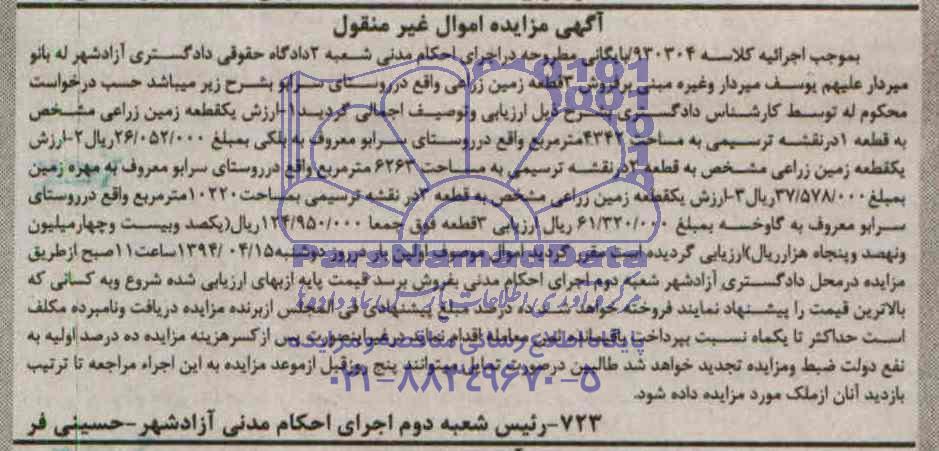 آگهی مزایده اموال غیر منقول
بموجب اجرائیه کلاسه ۹۳۰۳۰۴/بایگانی مطروحه دراجرای احکام مدنی شعبه ۲دادگاه حقوقی دادگستری آزادشهر له بانو
میردار علیهم یوسف میردار وغیره مبنی برفروش ۳قطعه زمین زراعی واقع درروستای سرابو بشرح زیر میباشد حسب درخواست
محکوم له توسط کارشناس دادگستری بشرح ذیل ارزیابی وتوصیف اجمالی گردید۱-ارزش یکقطعه زمین زراعی مشخص
به قطعه ۱درنقشه ترسیمی به مساحت ۴۳۴۲مترمربع واقع درروستای سرابو معروف به پلکی بمبلغ ۲۶/۰۵۲/۰۰۰ریال۲-ارزش
یکقطعه زمین زراعی مشخص به قطعه ۲درنقشه ترسیمی به مساحت ۶۲۶۳ مترمربع واقع درروستای سرابو معروف به مهره زمین
بمبلغ۳۷/۵۷۸/۰۰۰ریال۳-ارزش یکقطعه زمین زراعی مشخص به قطعه ۳در نقشه ترسیمی بمساحت۱۰۲۲۰مترمربع واقع درروستای
سرابو معروف به گاوخسه بمبلغ ۶۱/۳۲۰/۰۰۰ ریال ارزیابی ۳قطعه فوق جمعا ۱۲۴/۹۵۰/۰۰۰ریال(یکصد وبیست وچهارمیلیون
ونهصد وپنجاه هزارریال)ارزیابی گردیده است مقرر گردید اموال موصوف اولین بار درروز دوشنبه۱۳۹۴/۰۴/۱۵ساعت۱۱صبح ازطریق
مزایده درمحل دادگستری آزادشهر شعبه دوم اجرای احکام مدنی بفروش برسد قیمت پایه ازبهای ارزیابی شده شروع وبه کسانی که
بالاترین قیمت را پیشنهاد نمایند فروخته خواهد شد ده درصد مبلغ پیشنهادی فی المجلس ازبرنده مزایده دریافت ونامبرده مکلف
است حداکثر تا یکماه نسبت بپرداخت باقیمانده ثمن معامله اقدام نماید درغیراینصورت پس ازکسرهزینه مزایده ده درصد اولیه به
نفع دولت ضبط ومزایده تجدید خواهد شد طالبین درصورت تمایل میتوانند پنج روزقبل ازموعد مزایده به این اجراء مراجعه تا ترتیب
بازدید آنان ازملک مورد مزایده داده شود.
۷۲۳-رئیس شعبه دوم اجرای احکام مدنی آزادشهر-حسینی فر
ParsNamadData
مرکز فرآوری اطلاعات پارس نماد داده‌ها
پایگاه اطلاع رسانی مناقصه و مزایده
۰۲۱-۸۸۳۴۹۶۷۰-۵